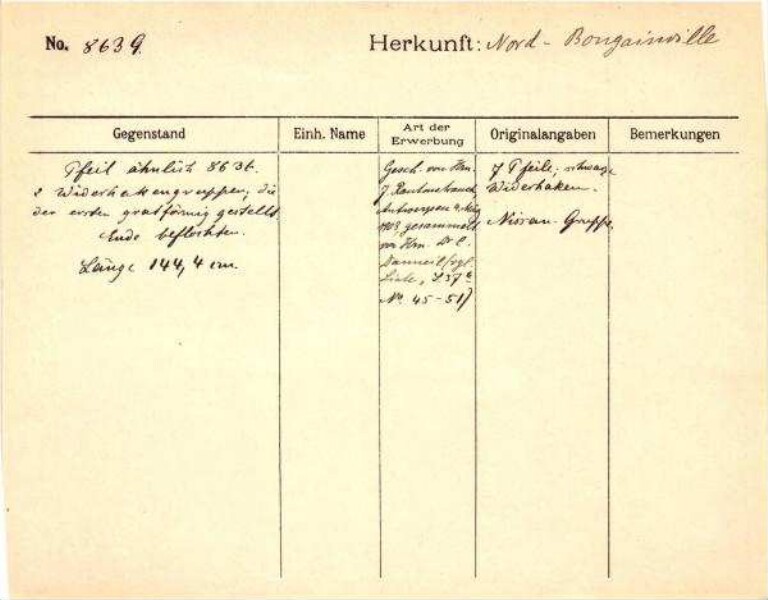 No. 8639
Herkunft: Nord-Bougainville
Gegenstand
Einh. Name
Art der Erwerbung
Originalangaben
Bemerkungen
Pfeil ähnlich 863
2 Widerhakengruppen, die
der ersten gratförmig gestellt.
Ende beflochten.
Länge 144,4 cm.
Gesch. von Hrn.
J.
Antwerpen
gesammelt
von Hrn. Dr. C.
Danneil (vgl.
Liste, S. 37
No. 45-51)
7 Pfeile, schwarze
Widerhaken.
Nissan-Gruppe.